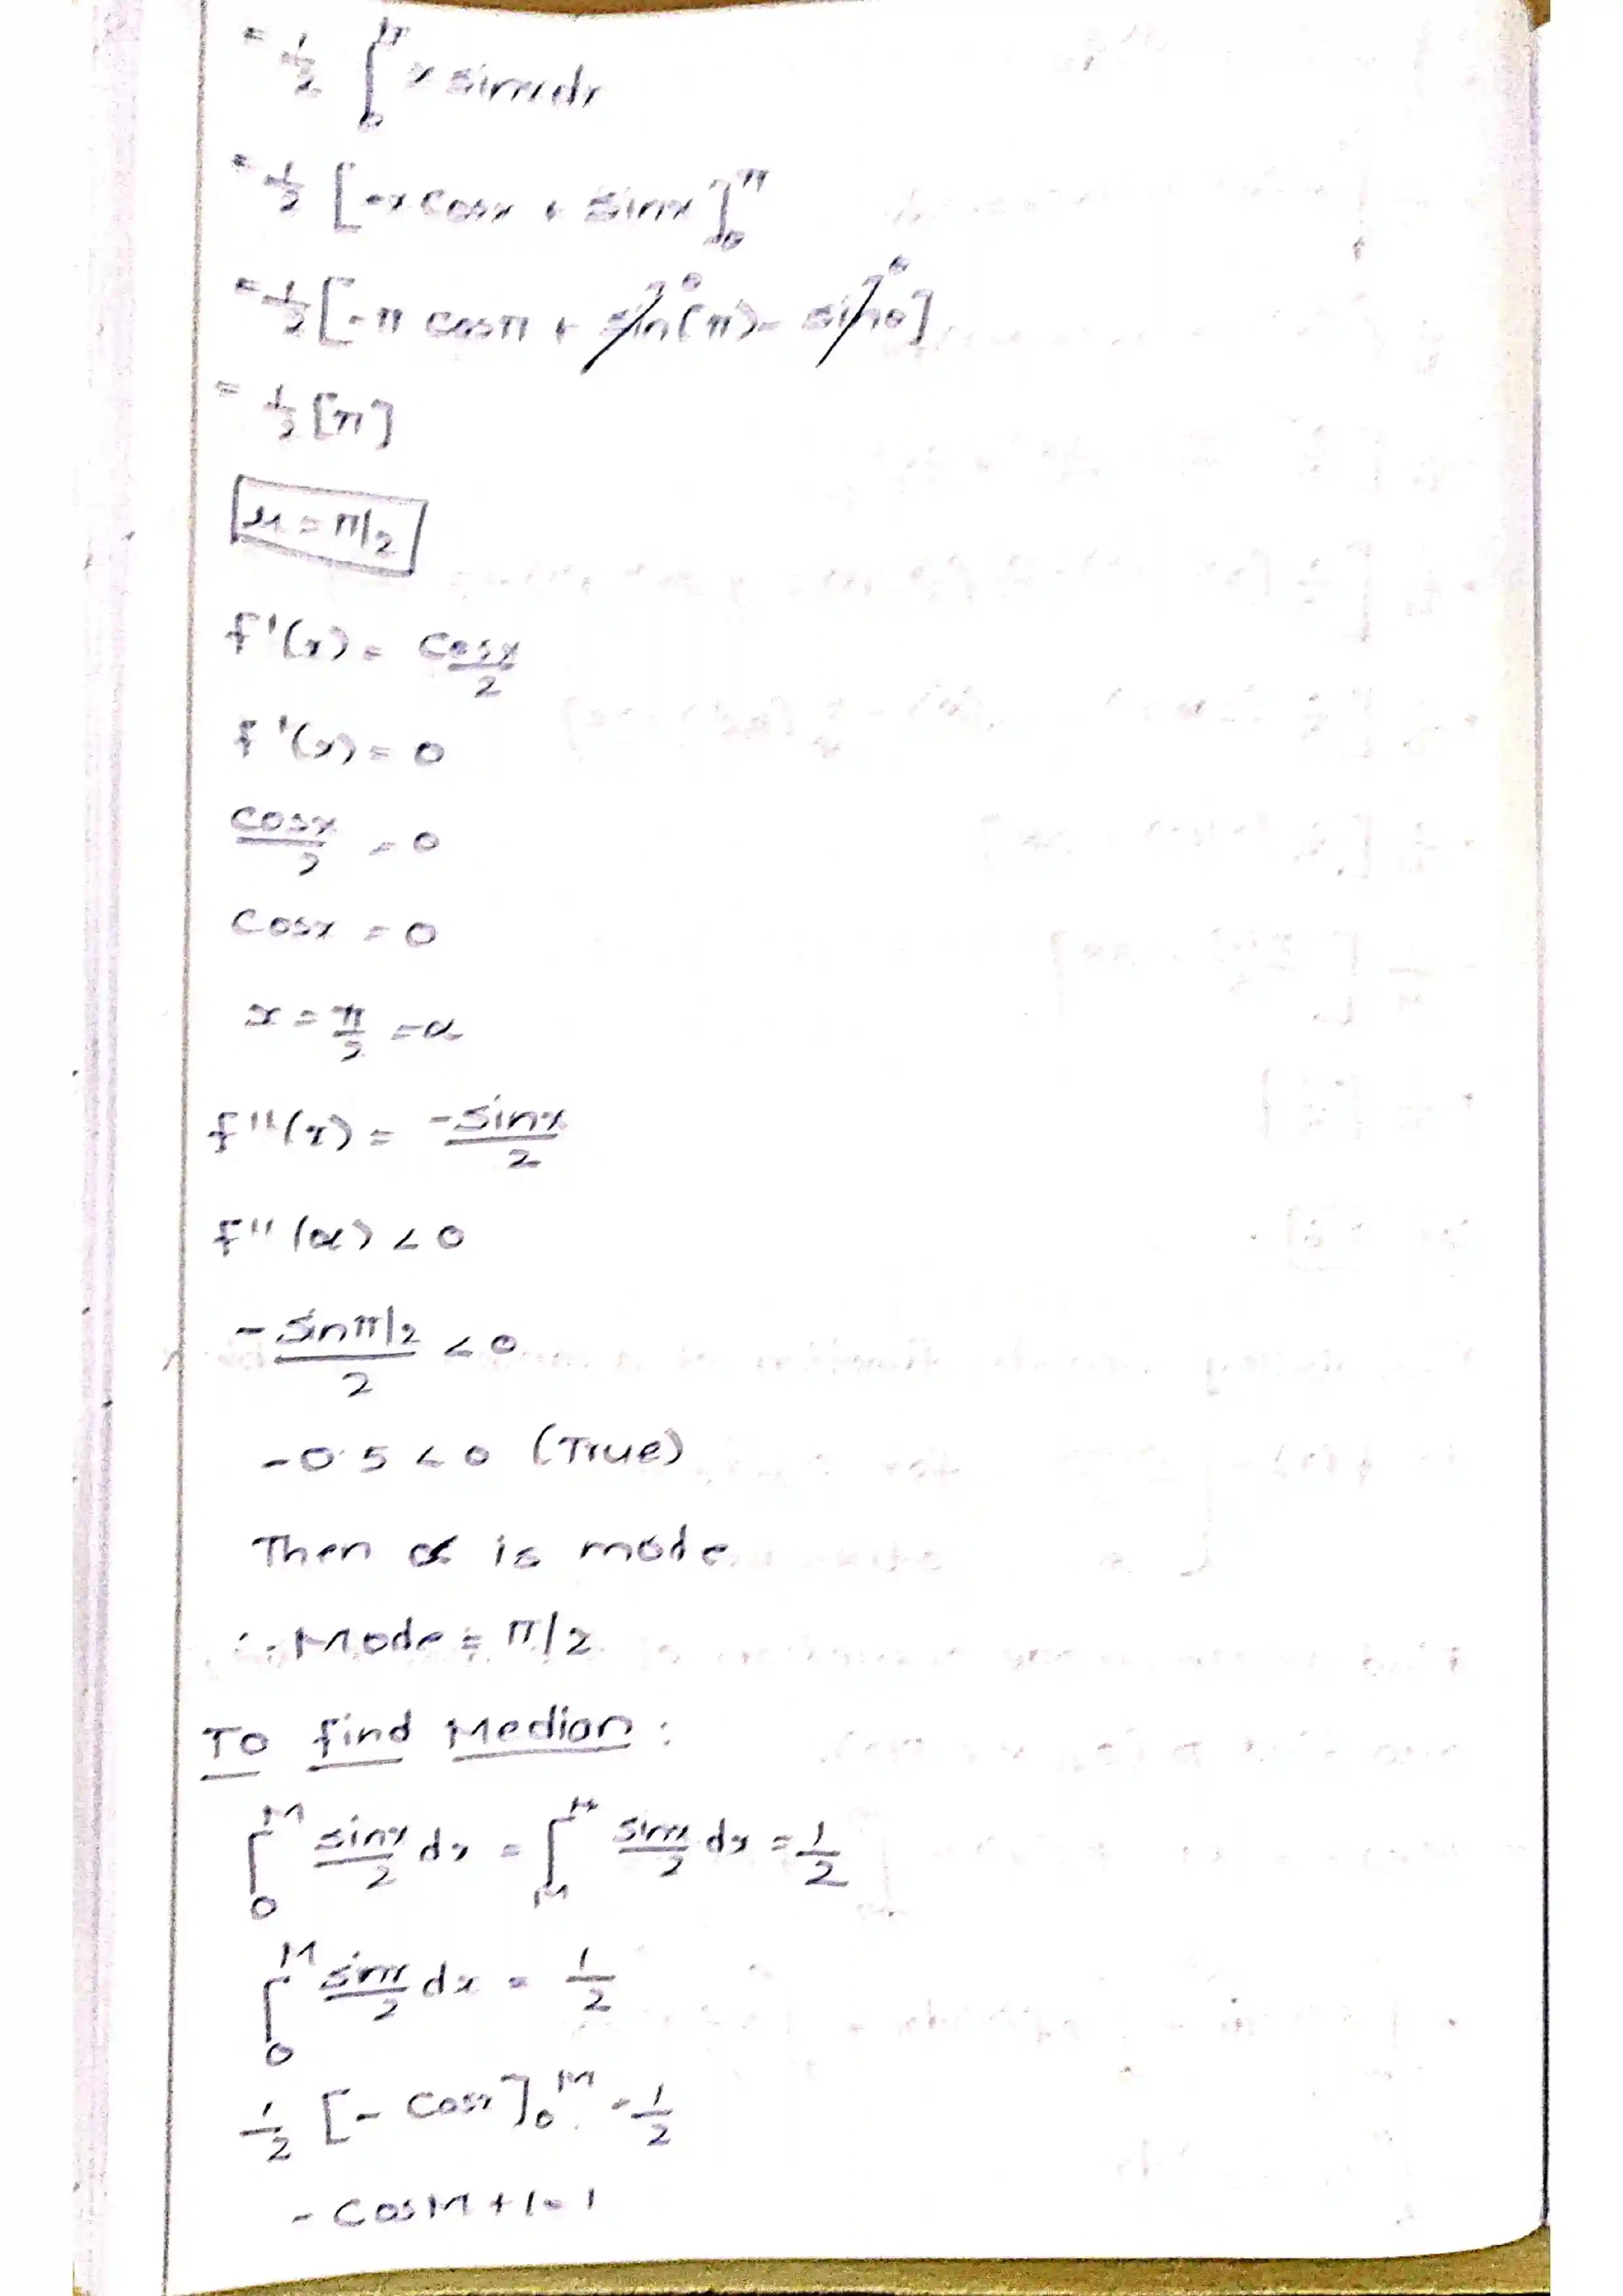 = 1/2 ∫₀^π x sinx dx
= 1/2 [-x cosx + sinx]₀^π
= 1/2 [-π cosπ + sin(π)⁰ - sin0⁰]
= 1/2 [π]
μ = π/2
f'(x) = cosx/2
f'(x) = 0
cosx/2 = 0
cosx = 0
x = π/2 = α
f''(x) = -sinx/2
f''(α) < 0
-sinπ/2 / 2 < 0
-0.5 < 0 (True)
Then α is mode
∴ Mode = π/2
To find Median :
∫₀^M sinx/2 dx = ∫_M^π sinx/2 dx = 1/2
∫₀^M sinx/2 dx = 1/2
1/2 [-cosx]₀^M = 1/2
-cosM + 1 = 1